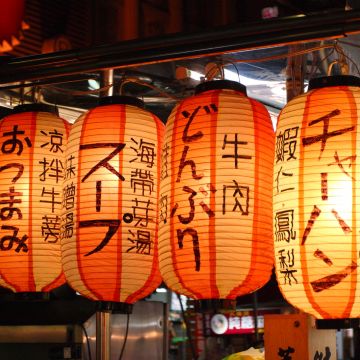 おつまみ
涼拌牛蒡
味噌湯
スープ
海帶芽湯
どんぶり
牛肉
チャーハン
蝦仁・鳳梨